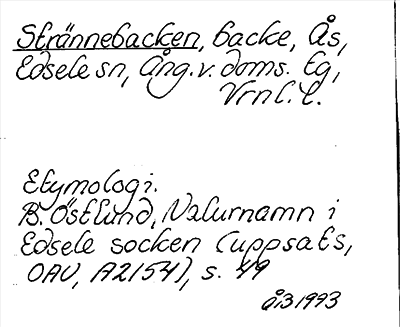 Strännebacken, backe, Ås,
Edsele sn, Ång. v. doms. tg,
Vrnl. l.
Etymologi.
B. Östlund, Naturnamn i
Edsele socken (uppsats,
OAU, A2154), s. 49
åß 1993